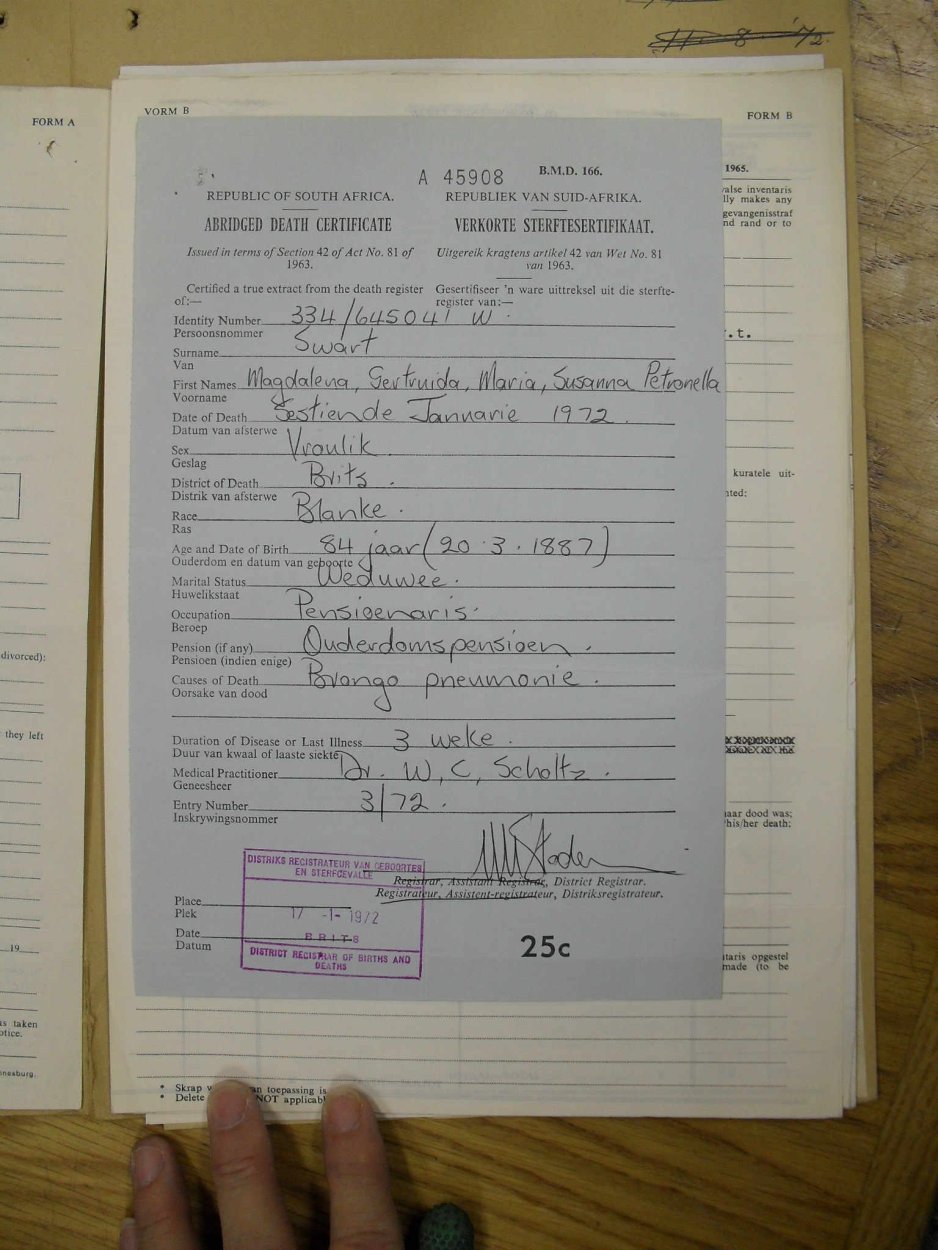 11 8 '72
FORM A
VORM B
FORM B
A 45908
B.M.D. 166.
REPUBLIC OF SOUTH AFRICA.
REPUBLIEK VAN SUID-AFRIKA.
ABRIDGED DEATH CERTIFICATE
VERKORTE STERFTESERTIFIKAAT.
Issued in terms of Section 42 of Act No. 81 of
1963.
Uitgereik kragtens artikel 42 van Wet No. 81
van 1963.
Certified a true extract from the death register
of:—
Gesertifiseer 'n ware uittreksel uit die sterfte-
register van:—
Identity Number 334/645041 W.
Persoonsnommer
Surname Swart
Van
First Names Magdalena, Gertruida, Maria, Susanna Petronella
Voorname
Date of Death Sestiende Januarie 1972.
Datum van afsterwe
Sex Vroulik
Geslag
District of Death Brits.
Distrik van afsterwe
Race Blanke.
Ras
Age and Date of Birth 84 jaar (20.3.1887)
Ouderdom en datum van geboorte
Marital Status Weduwee.
Huwelikstaat
Occupation Pensioenaris.
Beroep
Pension (if any) Ouderdomspensioen.
Pensioen (indien enige)
Causes of Death Brongo pneumonie.
Oorsake van dood
Duration of Disease or Last Illness 3 weke.
Duur van kwaal of laaste siekte
Medical Practitioner Dr. W, C, Scholtz.
Geneesheer
Entry Number 3/72.
Inskrywingsnommer
Registrar, Assistant Registrar, District Registrar.
Registrateur, Assistent-registrateur, Distriksregistrateur.
DISTRIKS REGISTRATEUR VAN GEBOORTES
EN STERFGEVALLE
Place
Plek
17 -1- 1972
Date
BRITS
Datum
DISTRICT REGISTRAR OF BIRTHS AND
DEATHS
25c
1965.
valse inventaris
lly makes any
gevangenisstraf
nd rand or to
r.t.
kuratele uit-
nted:
naar dood was;
his/her death:
taris opgestel
made (to be
divorced):
they left
19
as taken
otice.
nnesburg.
* Skrap an toepassing is
* Delete NOT applicabl